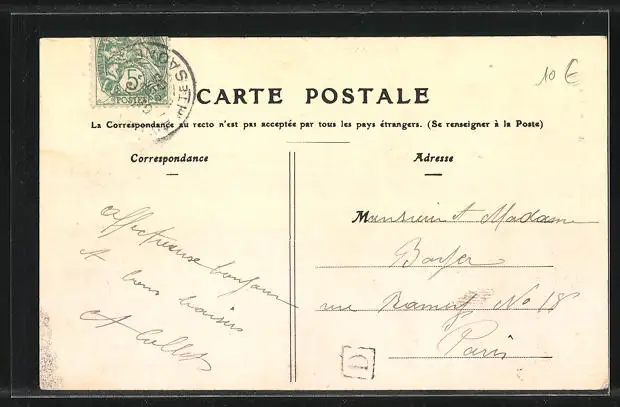 5c
POSTES
10 €
CARTE POSTALE
La Correspondance au recto n'est pas acceptée par tous les pays étrangers. (Se renseigner à la Poste)
Correspondance
Adresse
affectueux bonjour
et bons baisers
Monsieur et Madame
rue Ramey No 18
Paris
D